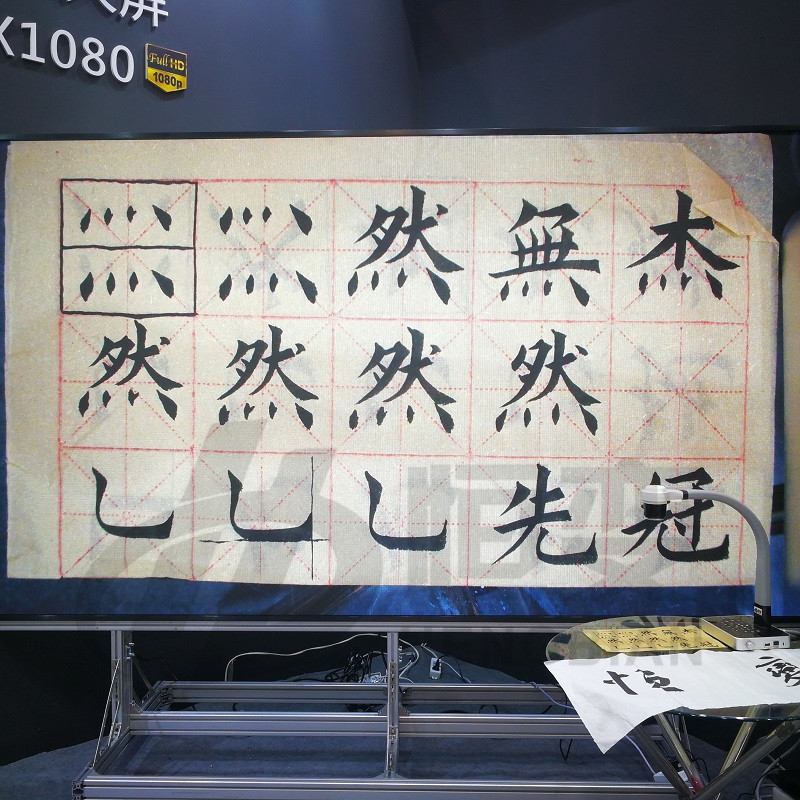 屏
X1080
Full HD
1080p
灬 灬 然 無 杰
灬 灬
然 然 然 然
乚 乚 乚 先 冠
恒
DIAN